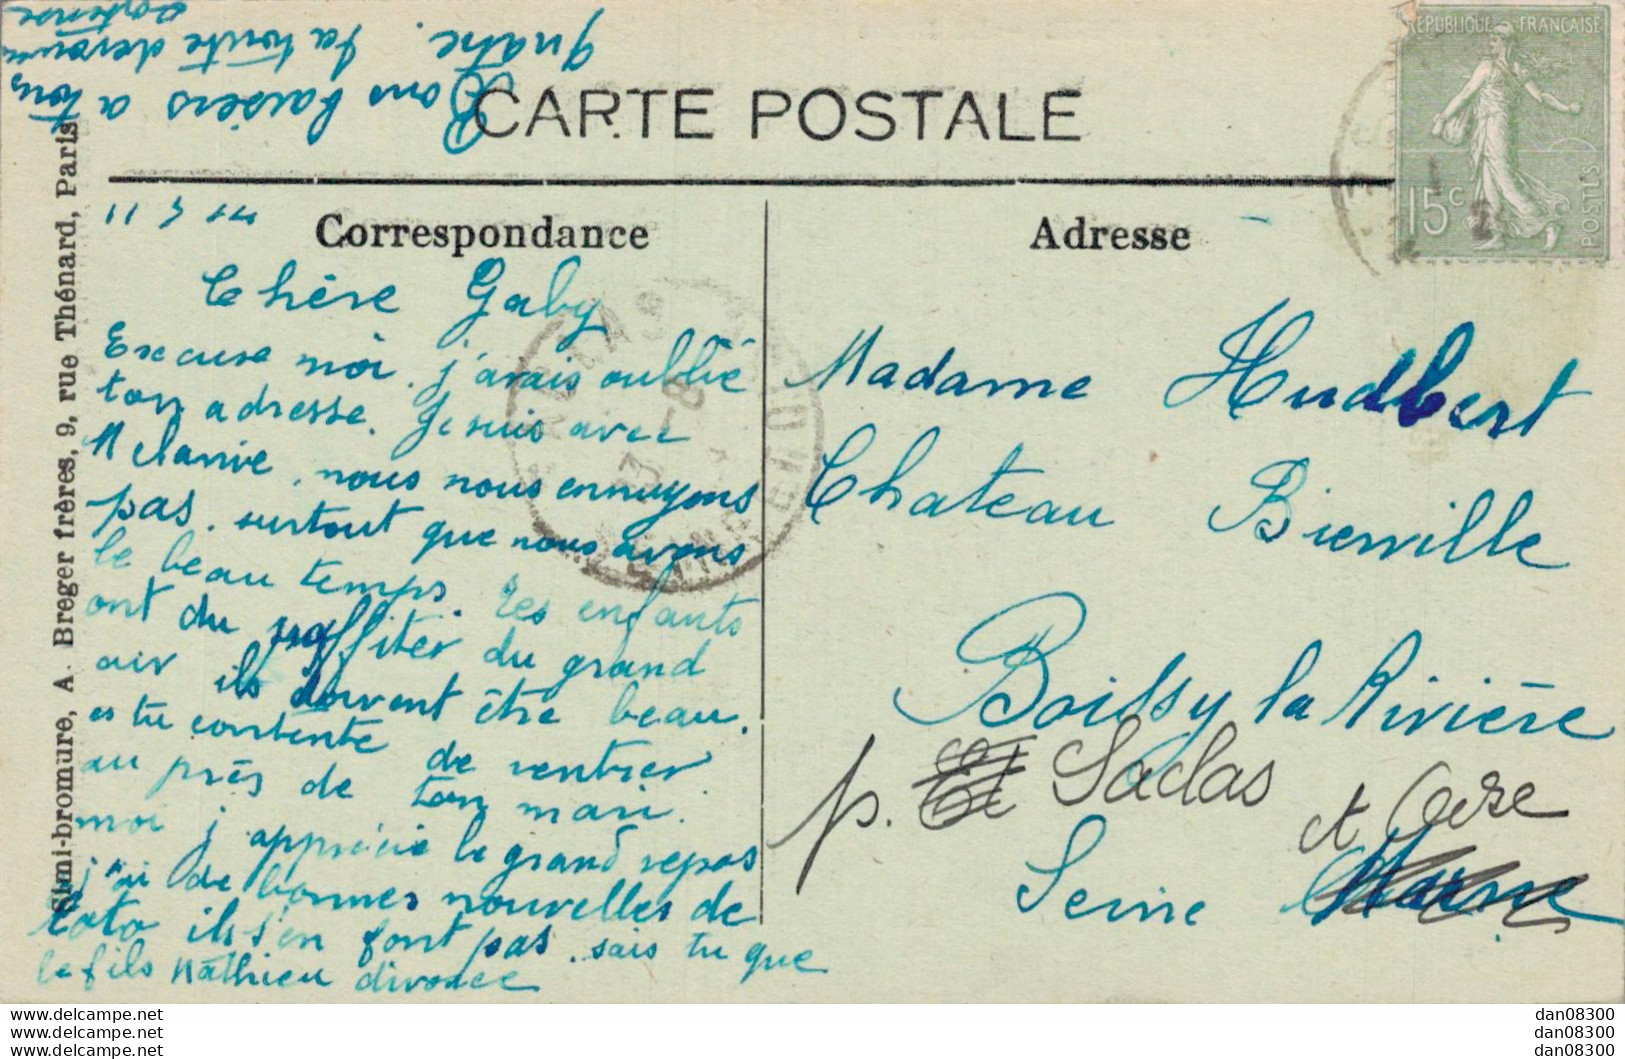 CARTE POSTALE
Correspondance
Adresse
RÉPUBLIQUE FRANÇAISE
15c
POSTES
Simi-bromure, A. Breger frères, 9, rue Thénard, Paris
Chère Gaby
Excuse moi. j'avais oublié
ton adresse. Je suis avec
Mélanie, nous nous ennuyons
pas. surtout que nous avons
le beau temps. les enfants
ont du profiter du grand
air ils doivent être beau.
es tu contente de rentrer
au près de ton mari.
moi j apprécie le grand repos
j'ai de bonnes nouvelles de
toto ils s'en font pas. sais tu que
le fils Mathieu divorce
Bons baisers a tous
quatre. ta toute dévouée
Madame Hudbert
Chateau Bierville
Boissy la Rivière
p. Saclas
Seine et Oise
Marne
dan08300
dan08300
dan08300
https://www.delcampe.net
https://www.delcampe.net
https://www.delcampe.net